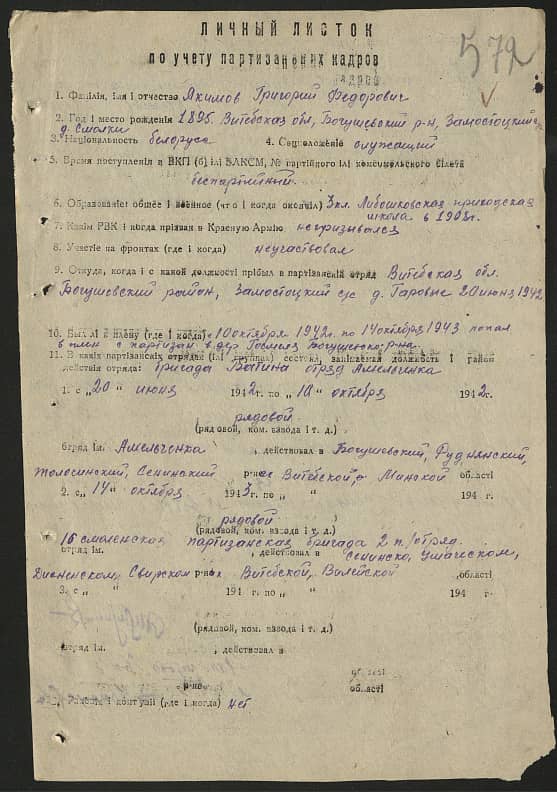 ЛИЧНЫЙ ЛИСТОК
572
по учету партизанских кадров
1. Фамілія, імя і отчество Акимов Григорий Федорович
2. Год і место рождения 1895. Витебская обл, Богушевский р-н, Замостоцкий с/с
д. Смолки
3. Національность белорусс 4. Соцположение служащий
5. Время поступления в ВКП (б) ілі ВЛКСМ, № партійного ілі комсомольского білета
беспартийный
6. Образованіе: общее і военное (что і когда окончіл) 3 кл. приходская
школа в 1908г.
7. Какім РВК і когда прізван в Красную Армію непризывался
8. Участіе на фронтах (где і когда) неучаствовал
9. Откуда, когда і с какой должності прібыл в партизанскій отряд Витебская обл.
Богушевский район, Замостоцкий с/с д. Гаровые 20 июня 1942
10. Был лі в плену (где і когда) с 10 октября 1942г. по 14 октября 1943 попал
в плен с партизан в дер. Богушевского р-на.
11. В какіх партізанскіх отрядах (ілі группах) состоял, занімаемая должность і район
действія отряда: Бригада Ватина отряд Амельченка
1. с „20" июня 1942г. по „10" октября 1942г.
рядовой
(рядовой, ком. взвода і т. д.)
отряд ім. Амельченка, действовал в Богушевский, Руднянский,
Толосинский, Сенинский р-нес Витебской, Минской області
2. с „14" октября 1943г. по „ " 194 г.
рядовой
(рядовой, ком. взвода і т. д.)
16 смоленская партизанская бригада 2 п./отряд
отряд ім. , действовал в Сенинско, Ушачском,
Дисненском, Свирском р-нес Витебской, Вилейской області
3. с „ " 191 г. по „ " 194 г.
(рядовой, ком. взвода і т. д.)
отряд ім. , действовал в
області
р-нес області
Раненія і контузіі (где і когда) нет